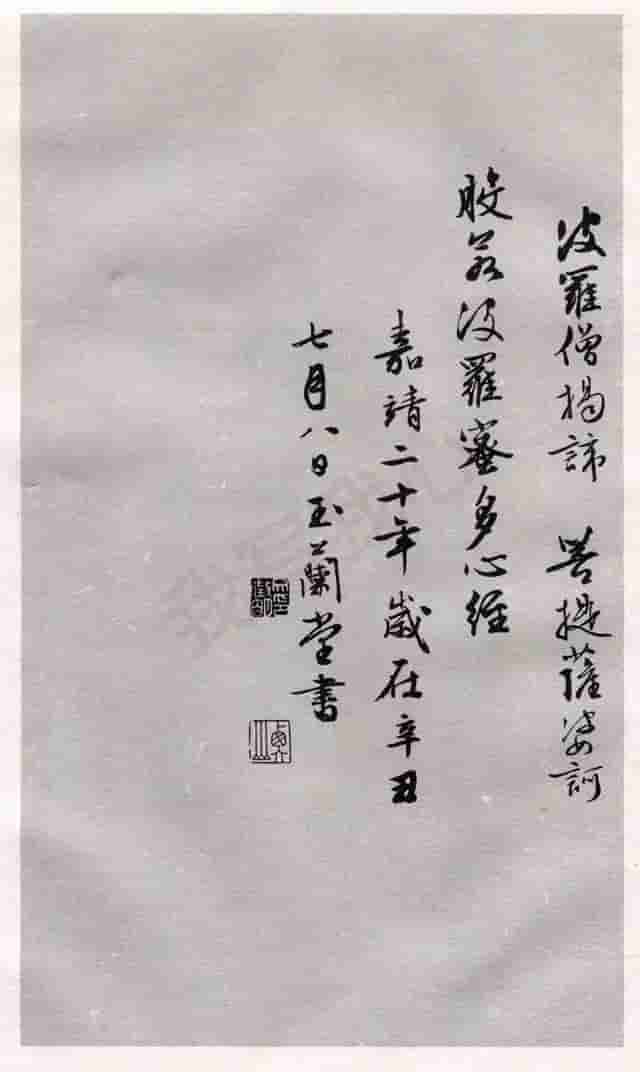 波羅僧揭諦　菩提薩婆訶
般若波羅蜜多心經
嘉靖二十年歲在辛丑
七月八日玉蘭堂書